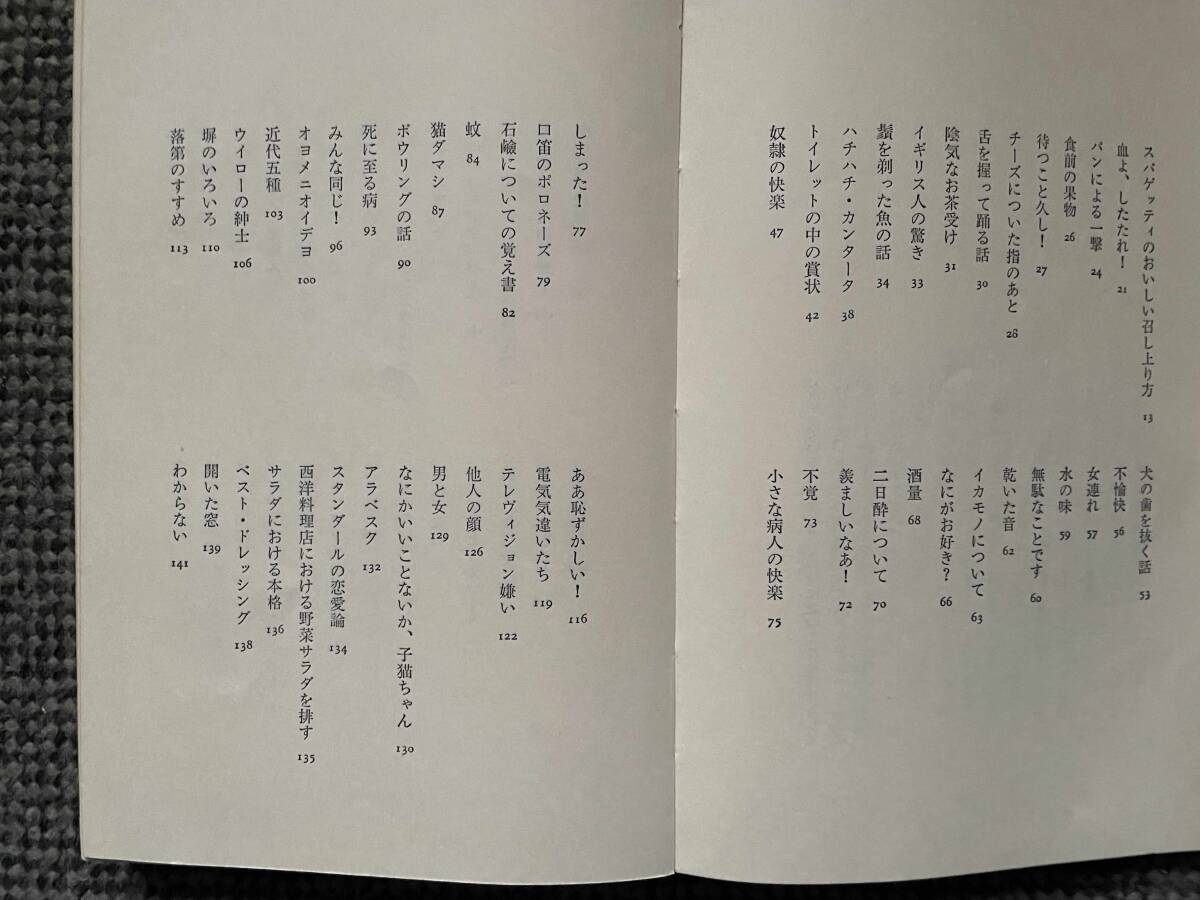 スパゲッティのおいしい召し上り方 13
血よ、したたれ! 21
パンによる一撃 24
食前の果物 26
待つこと久し! 27
チーズについた指のあと 28
舌を握って踊る話 30
陰気なお茶受け 31
イギリス人の驚き 33
鬚を剃った魚の話 34
ハチハチ・カンタータ 38
トイレットの中の賞状 42
奴隷の快楽 47
犬の歯を抜く話 53
不愉快 56
女連れ 57
水の味 59
無駄なことです 60
乾いた音 62
イカモノについて 63
なにがお好き? 66
酒量 68
二日酔について 70
羨ましいなあ! 72
不覚 73
小さな病人の快楽 75
しまった! 77
口笛のポロネーズ 79
石鹼についての覚え書 82
蚊 84
猫ダマシ 87
ボウリングの話 90
死に至る病 93
みんな同じ! 96
オヨメニオイデヨ 100
近代五種 103
ウイローの紳士 106
塀のいろいろ 110
落第のすすめ 113
ああ恥ずかしい! 116
電気気違いたち 119
テレヴィジョン嫌い 122
他人の顔 126
男と女 129
なにかいいことないか、子猫ちゃん 130
アラベスク 132
スタンダールの恋愛論 134
西洋料理店における野菜サラダを排す 135
サラダにおける本格 136
ベスト・ドレッシング 138
開いた窓 139
わからない 141